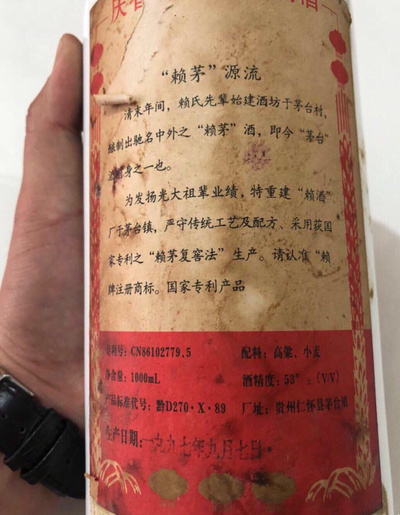 “赖茅”源流
清末年间，赖氏先辈始建酒坊于茅台村，
酿制出驰名中外之“赖茅”酒，即今“茅台”
身之一也。
为发扬光大祖辈业绩，特重建“赖酒”
厂于茅台镇，严守传统工艺及配方、采用获国
家专利之“赖茅复窖法”生产。请认准“赖
牌注册商标。国家专利产品
专利号：CN86102779.5 配料：高粱、小麦
净含量：1000mL 酒精度：53°：(V/V)
产品标准代号：黔D270·X·89 厂址：贵州仁怀县茅台镇
生产日期：一九九七年九月七日